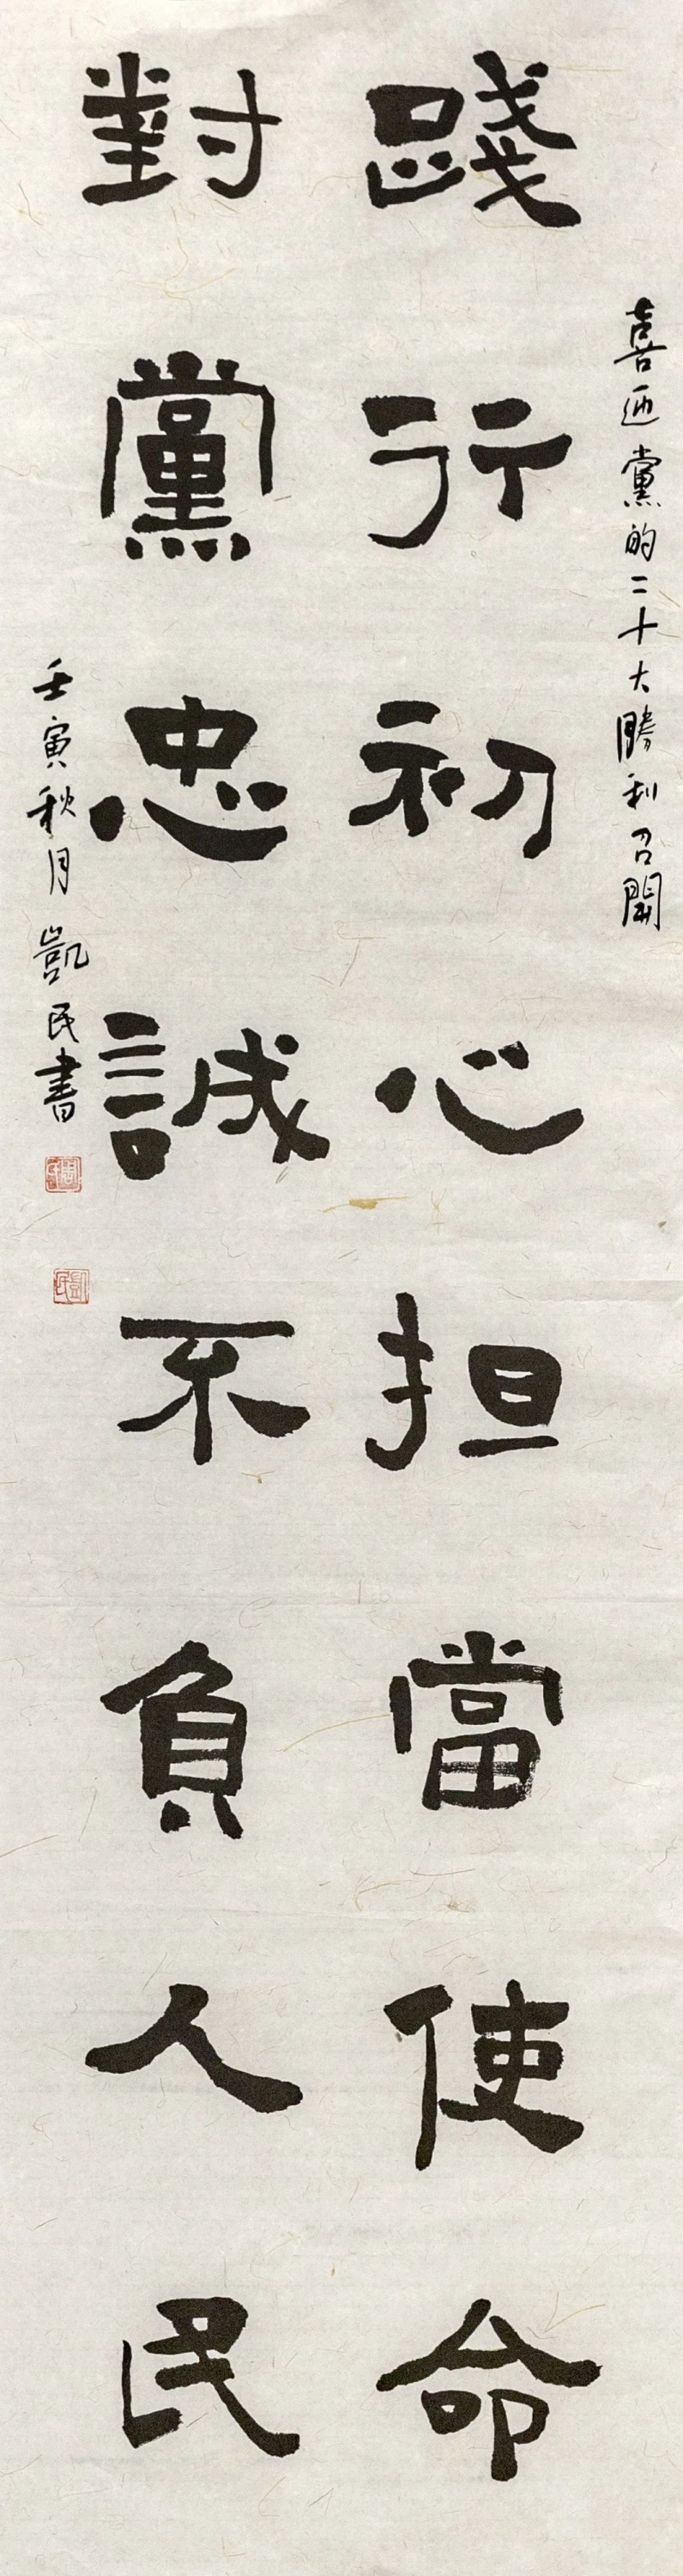 喜迎黨的二十大勝利召開
踐行初心担當使命
對黨忠誠不負人民
壬寅秋月凱民書